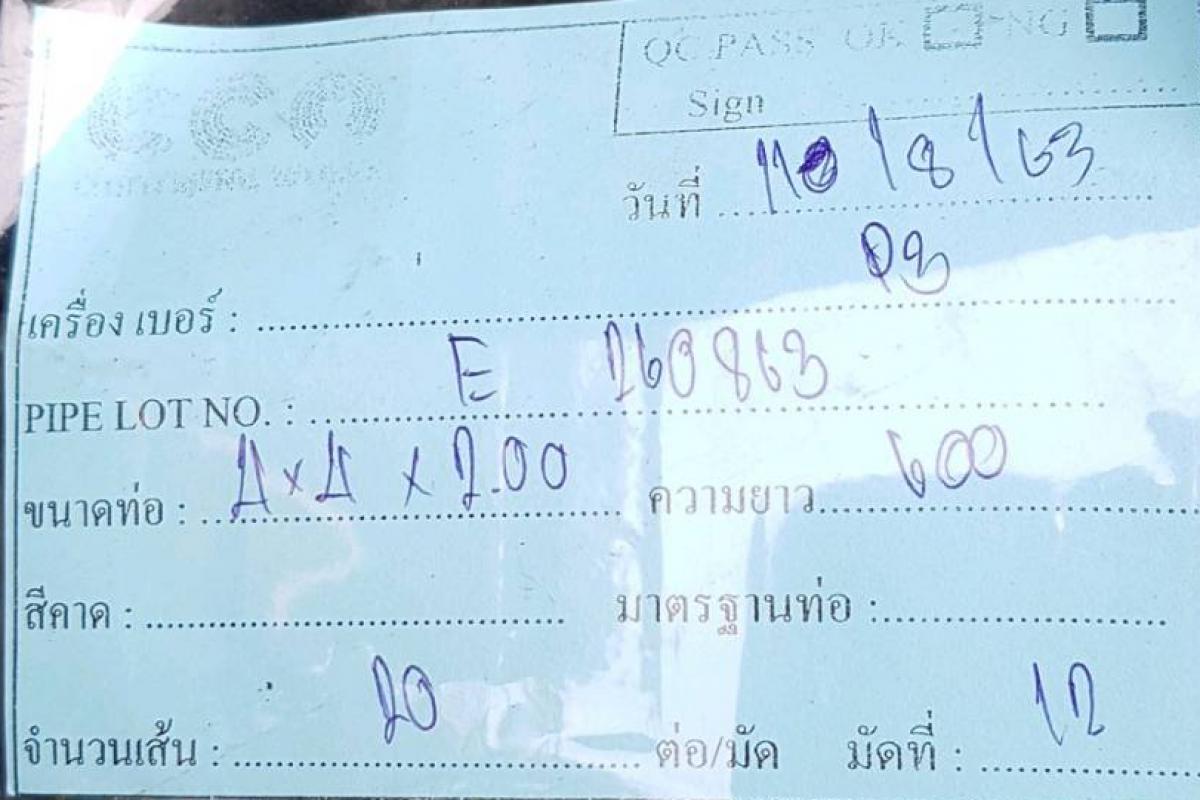 QC.PASS OK NG
Sign
วันที่ /8/63
เครื่อง เบอร์ : 03
PIPE LOT NO. : E 260863
ขนาดท่อ : 4x4 x 2.00 ความยาว 600
สีคาด : มาตรฐานท่อ :
จำนวนเส้น : 20 ต่อ/มัด มัดที่ : 12